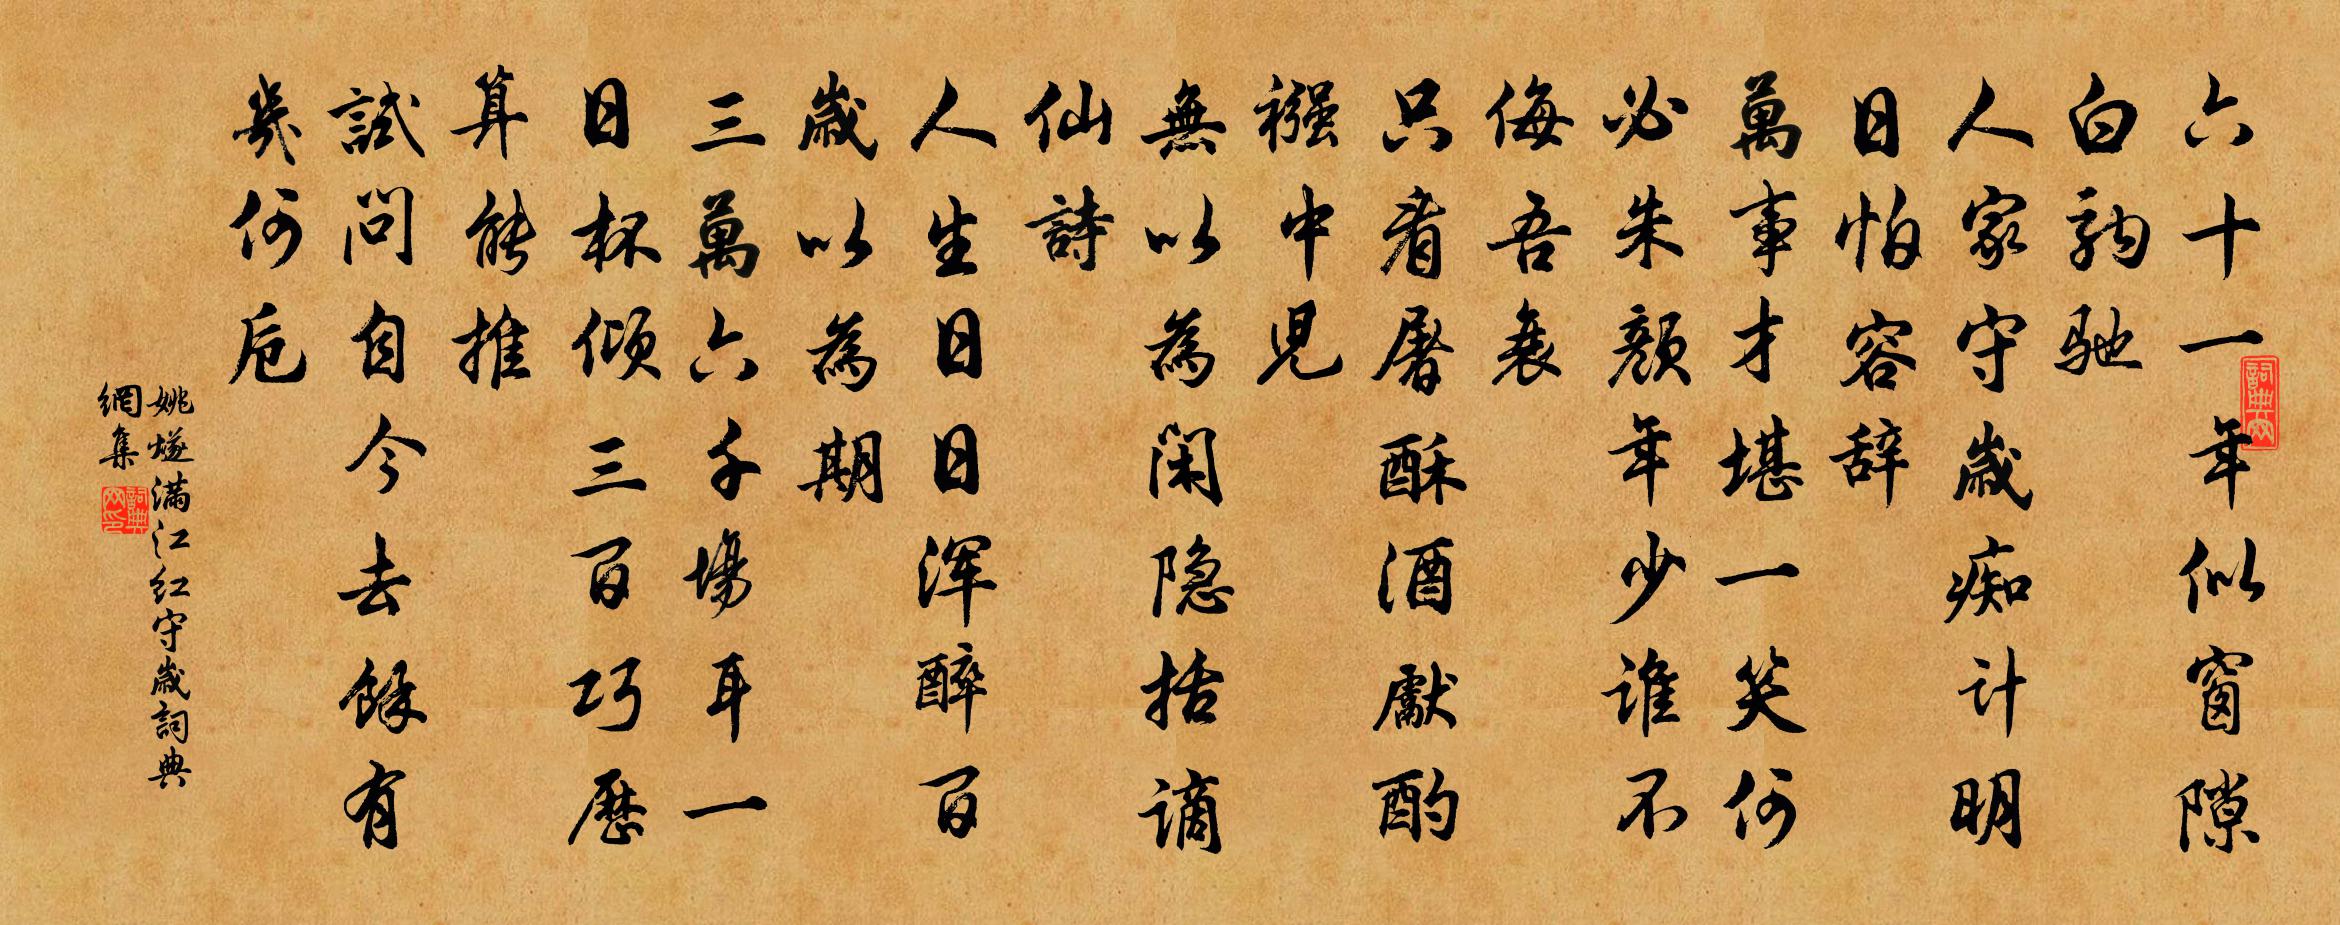 六十一年似窗隙
白驹馳
人家守歲痴计明
日怕容辞
萬事才堪一笑何
必朱颜年少谁不
侮吾衰
只着屠酥酒獻酌
襁中児
無以為闲隐括谪
仙詩
人生日日浑醉百
歲以為期
三萬六千場耳一
日杯倾三百巧歷
算能推
試问自今去餘有
幾何卮
姚燧滿江红守歲詞典
網集
詞典网
詞典网印